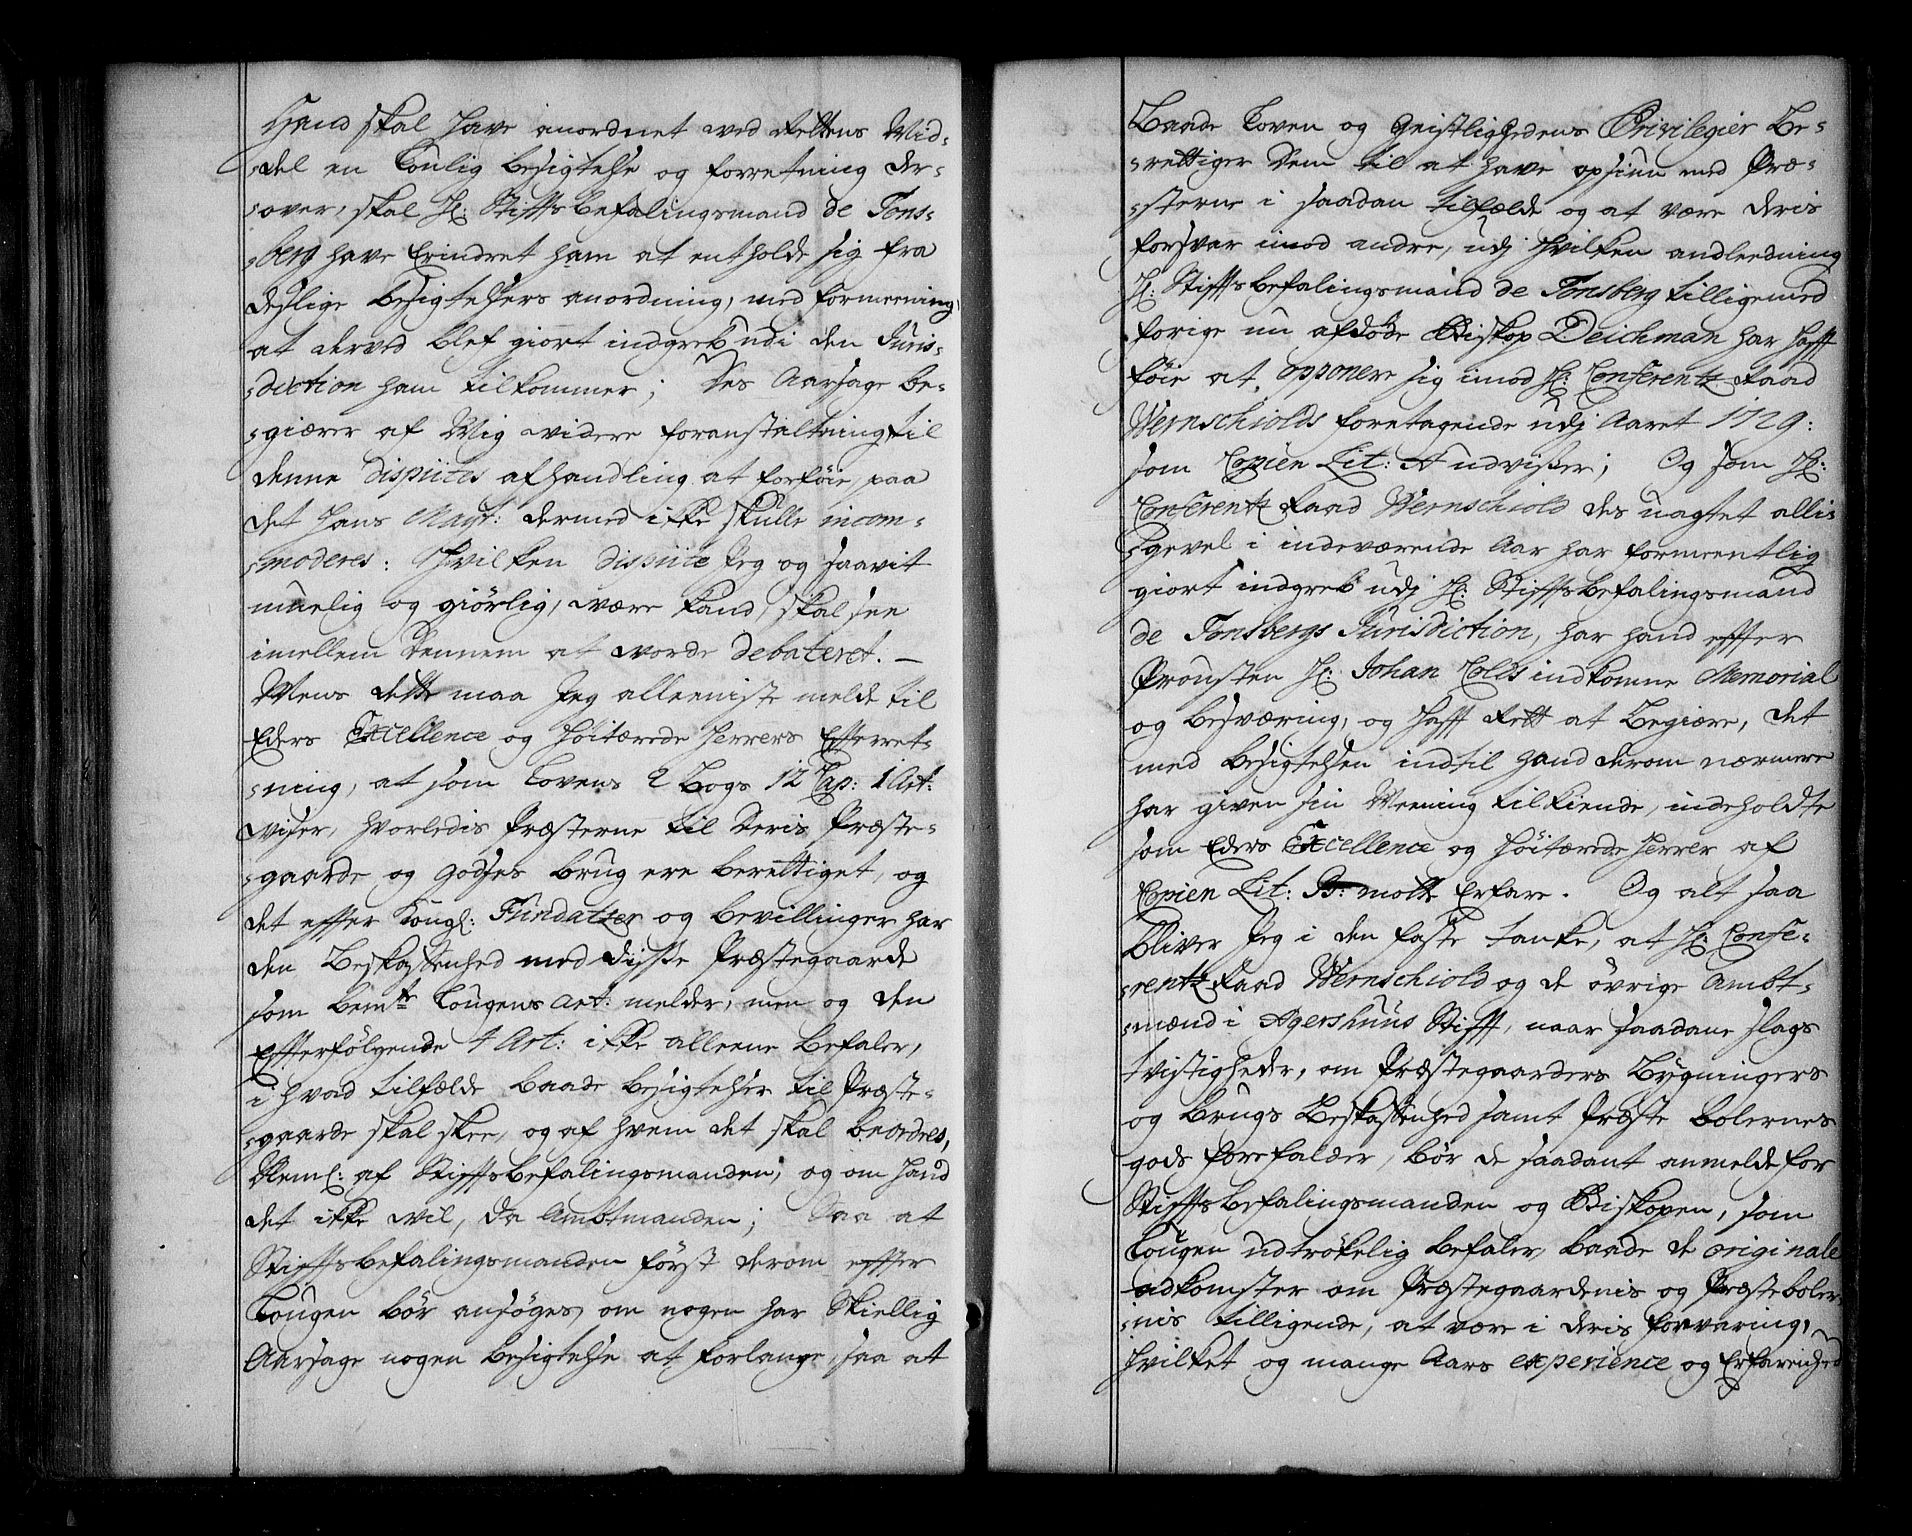 Hand skal have anordnet ved Rettens Mid-
-del en Louglig Besigtelse og forretning der-
-over, skal Hr: Stifftsbefalingsmand de Tons-
-berg have Erindret ham at entholde sig fra
deslige Besigtelsers anordning, med formeening,
at derved blef giort indgreb udi den Juris-
-diction ham tilkommer; Des Aarsage be-
-giærer af Mig videre foranstaltning til
denne disputes afhandling at forføie, paa
det Hans Mayt: dermed ikke skulle incom-
-moderes: Hvilken dispute Jeg og saavit
muelig og giørlig, være kand, skal see
imellem dennem at vorde debateret. —
Mens dette maa Jeg alleeniste melde til
Eders Excellence og Høitærede Herrers Efterret-
-ning, at som Lovens 2 Bogs 12 Cap: 1 Art:
viser, hvorledis Præsterne til deris Præste-
-gaarde og Godses brug ere berettiget, og
det effter Kongl: Fundatzer og bevillinger har
den Beskaffenhed med disse Præstegaarde
som bemte Lougens Art: melder, men og den
Effterfølgende 4 Art: ikke alleene befaler,
i hvad tilfælde baade besigtelser til Præste-
-gaarde skal skee, og af hvem det skal beordres,
Neml: af Stifftsbefalingsmanden, og om Hand
det ikke vil, da Ambtmanden; Saa at
Stifftsbefalingsmanden først derom effter
Lougen bør ansøges, om nogen har Skiellig
Aarsage nogen besigtelse at forlange, saa at
Baade Loven og Geistlighedens Privilegier Be-
-rettiger dem til at have opsiun med Præ-
-sterne i saadan tilfælde og at være deris
forsvar imod andre, udj hvilken andleedning
Hr: Stifftsbefalingsmand de Tonsberg tilligemed
forige nu afdøde Biskop Deichman har hafft
føie at opponere sig imod Hr: Conferentz Raad
Wernschiolds foretagende udj Aaret 1729:
som Copien Lit: A udviser; Og som Hr:
Conferentz Raad Wernschiold des uagtet alli-
-gevel i indeværende Aar har formeentlig
giort indgreb udj Hr: Stifftsbefalingsmand
de Tonsbergs Jurisdiction, har hand effter
Prousten Hr: Johan Colds indkomne Memorial
og besværing, og hafft Rett at Begiære, det
med besigtelsen indtil hand derom nærmere
har given sin Meening tilkiende, indeholdte
som Eders Excellence og Høitærede Herrer af
Copien Lit: B: motte Erfare. Og alt saa
bliver Jeg i den faste tanke, at Hr: Confe-
-rentz Raad Wernschiold og de øvrige Ambt-
-mænd i Agershuus Stifft, naar saadane slags
tvistigheder, om Præstegaarders Bygningers
og brugs Beskaffenhed samt Præste bolernes
gods forefalder, bør de saadant anmelde for
Stifftsbefalingsmanden og Biskopen, som
Lougen udtrøkelig befaler, baade de originale
adkomster om Præstegaardenis og Præsteboler-
-nis tilligende, at være i deris forvaring,
hvilket og mange Aars experience og Erfarenhed